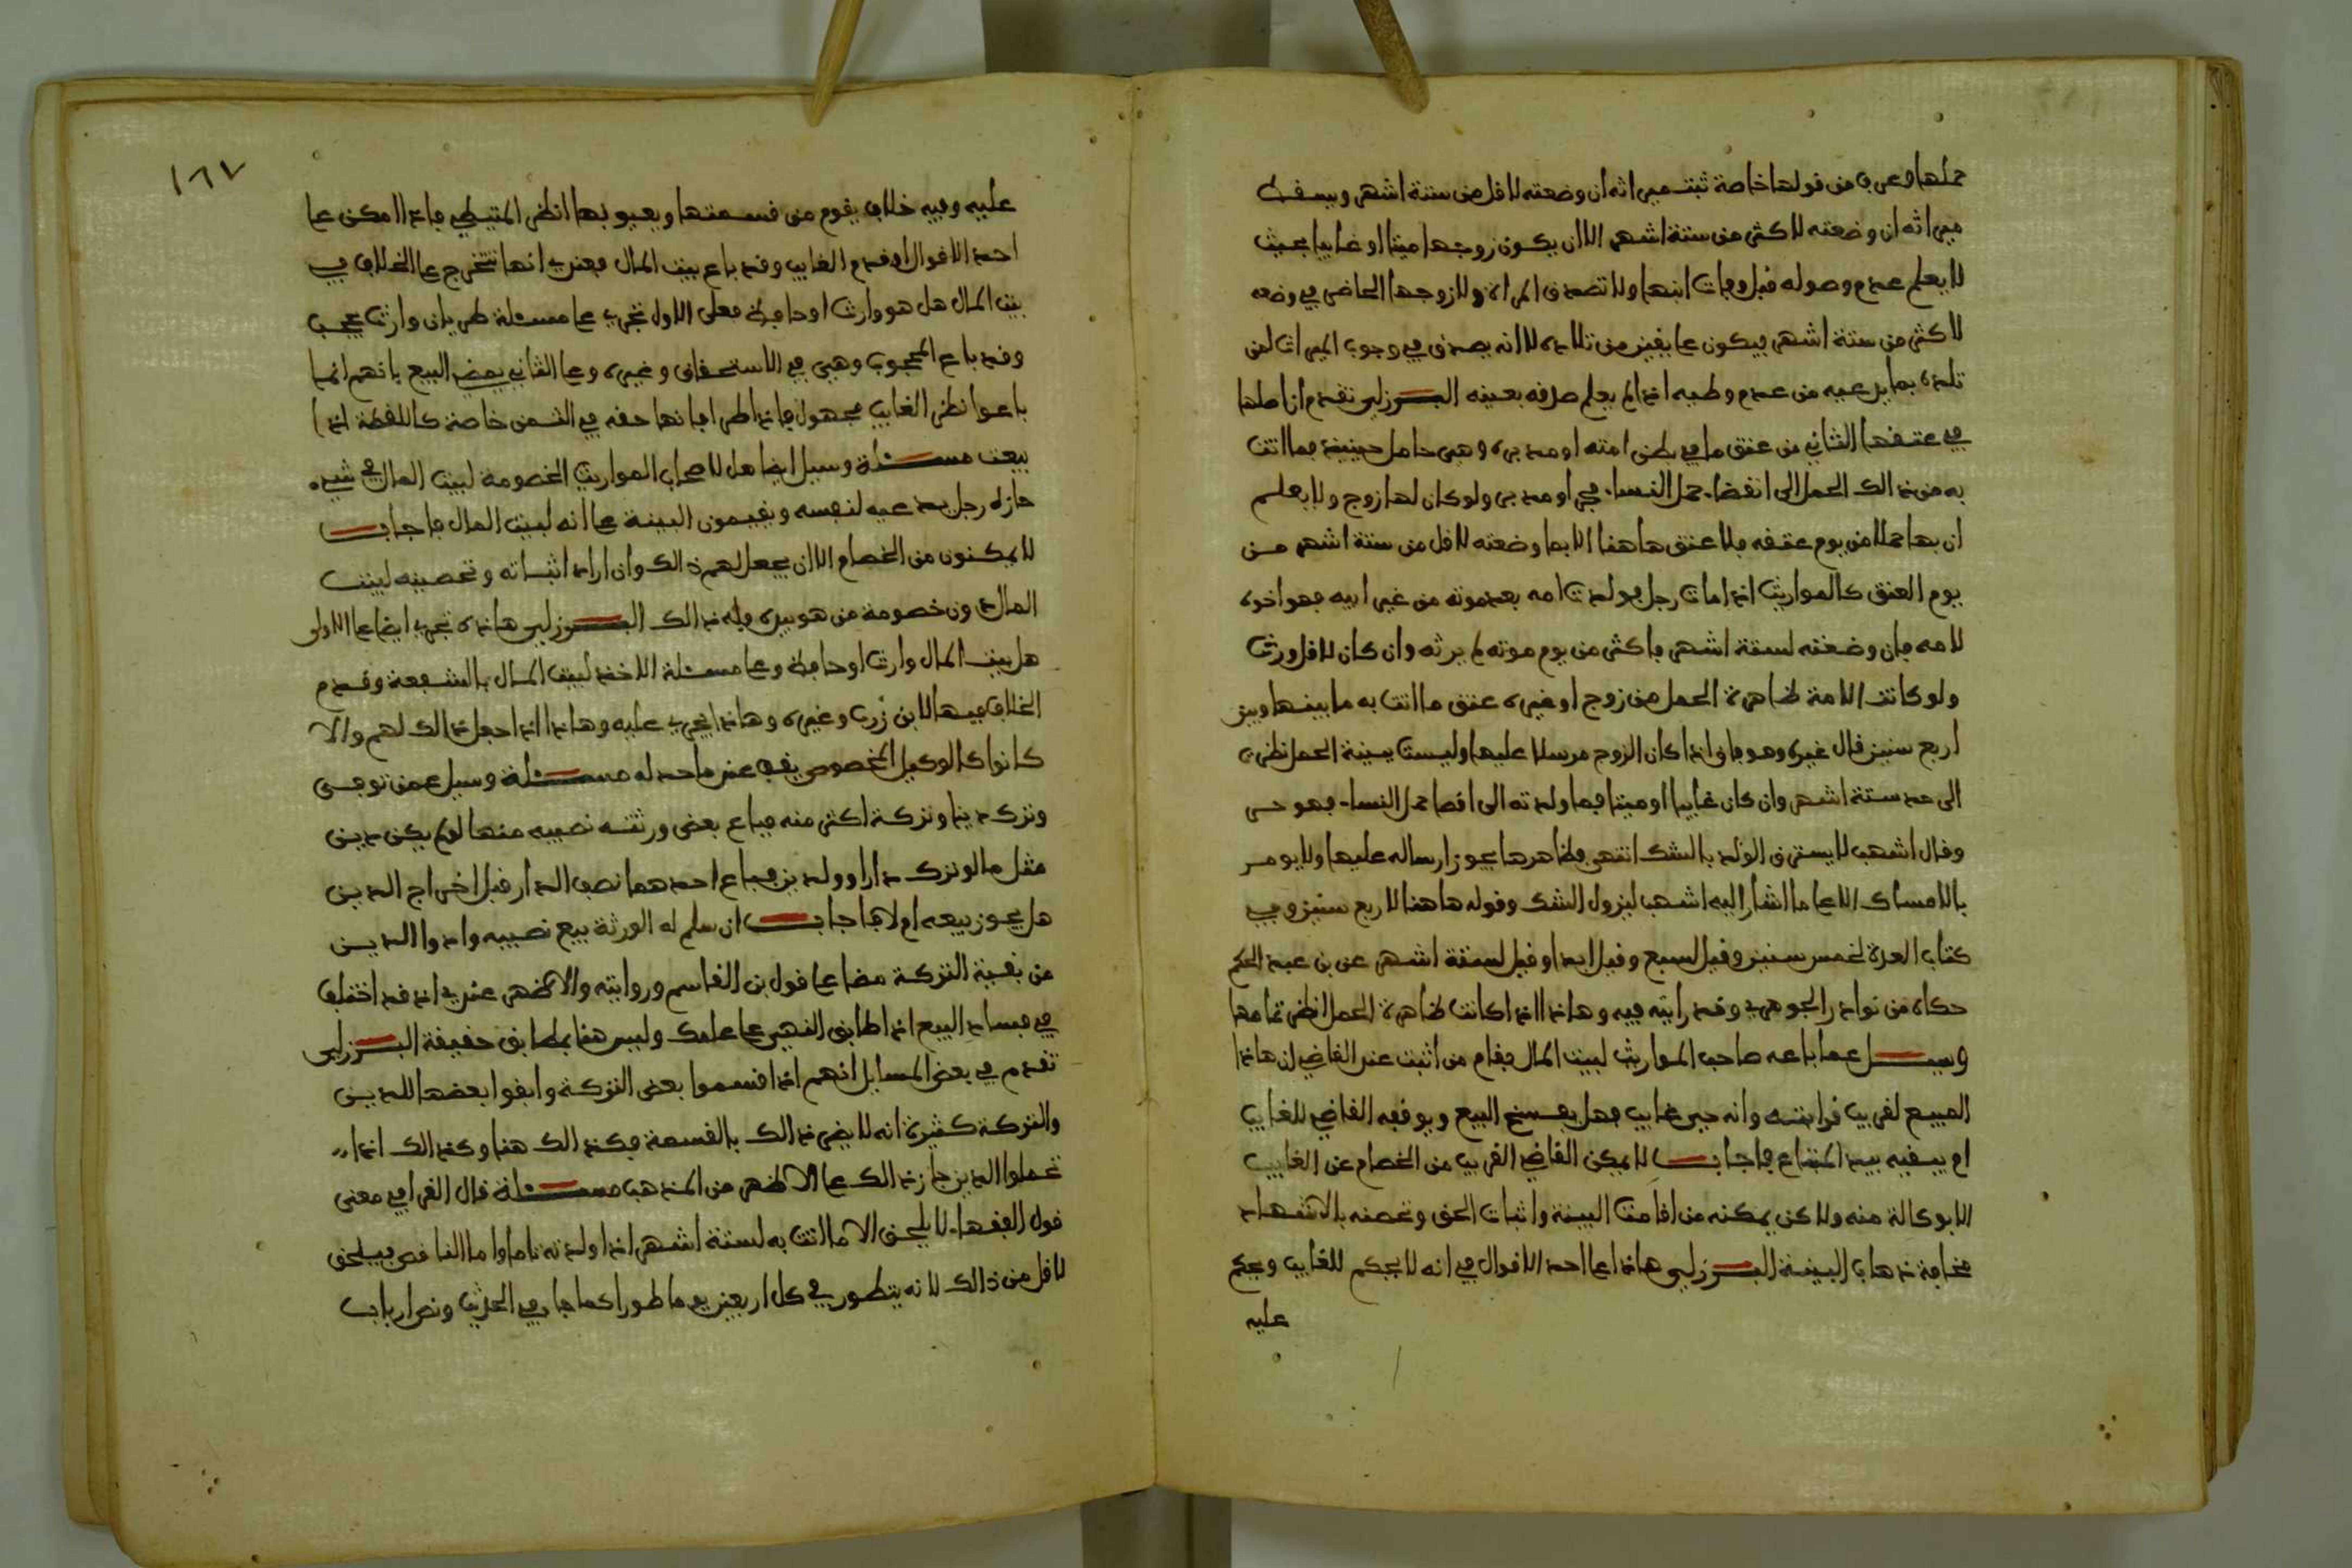 حملها وعرف من قولها خاصة ثبت ميراثه ان وضعته لاقل من ستة اشهر ويسقط
ميراثه ان وضعته لاكثر من ستة اشهر الا ان يكون زوجها ميتا او غايبا بحيث
لا يعلم عدم وصوله قبل وفات ابنها ولا تصدق المراة ولا زوجها الحاضر في وضعه
لاكثر من ستة اشهر فيكون على يقين من تلاده لاانه يصدق في وجوب الميراث لمن
تلده بما يدعيه من عدم وطيه اذا لم يعلم صدقه بعينه البرزلي تقدم ان اصلها
في عتقها الثاني من عتق ما في بطن امته او مدبره وهي حامل حينيذ فما اتت
به من ذالك الحمل الى انقضاء حمل النساء حر او مدبر ولو كان لها زوج ولا يعلم
ان بها حملا من يوم عتقه فلا عتق هاهنا الا بما وضعته لاقل من ستة اشهر من
يوم العتق كالمواريث اذا مات رجل فولدت امه بعد موته من غير ابيه فهو اخوه
لامه فان وضعته لستة اشهر فاكثر من يوم موته لم يرثه وان كان لاقل ورث
ولو كانت الامة ظاهرة الحمل من زوج او غيره عتق ما اتت به ما بينها وبين
اربع سنين قال غيره وهو فان اذا كان الزوج مرسلا عليها وليست بينة الحمل نظر
الى حد ستة اشهر وان كان غايبا او ميتا فما ولدته الى اقصا حمل النساء فهو حر
وقال اشهب لا يسترق الولد بالشك انتهى فظاهرها يجوز ارساله عليها ولا يومر
بالامساك الا على ما اشار اليه اشهب ليزول الشك وقوله هاهنا لاربع سنين وفي
كتاب العدة لخمس سنين وقيل لسبع وقيل ابدا وقيل لستة اشهر عن بن عبد الحكم
حكاه من نوادر الجوهري وقد رايته فيه وهاذا اذا كانت ظاهرة الحمل انظر تمامها
وسيل عما باعه صاحب المواريث لبيت المال فقام من اثبت عند القاضي ان هاذا
المبيع لقريب قرابته وانه حي غايب فهل يفسخ البيع ويوقفه القاضي للغايب
ام يبقيه بيد المبتاع فاجاب لا يمكن القاضي القريب من الخصام عن الغايب
الا بوكالة منه ولاكن يمكنه من اقامت البينة واثبات الحق وتحصنه بالاشهاد
مخافة ذهاب البينة البرزلي هاذا على احد الاقوال في انه لا يحكم للغايب ويحكم
عليه
١٦٧
عليه وفيه خلاف يقوم من قسمتها وبعيوبها انظر المتيطي فاذا امكن على
احد الاقوال او قدم الغايب وقد باع بيت المال فعندي انها تتخرج على الخلاف في
بيت المال هل هو وارث او حافظ فعلى الاول تجري على مسئلة طريان وارث يحجب
وقد باع المحجوب وهي في الاستحقاق وغيره وعلى الثاني يمضي البيع لانهم انما
باعوا نظر الغايب مجهول فاذا طرا فانما حقه في الثمن خاصة كاللقطة اذا
بيعت مسئلة وسيل ايضا هل لاصحاب المواريث الخصومة لبيت المال في شيء
حازه رجل يدعيه لنفسه ويقيمون البينة على انه لبيت المال فاجاب
لا يمكنون من الخصام الا ان يجعل لهم ذالك وان اراد اثباته وتحصينه لبيت
المال دون خصومة من هو بيده فله ذالك البرزلي هاذه تجري ايضا على الاولى
هل بيت المال وارث او حافظ وعلى مسئلة الاخذ لبيت المال بالشفعة وقدم
الخلاف فيها لابن زرب وغيره وهاذا يجري عليه وهاذا اذا جعل ذالك لهم والا
كانوا كالوكيل المخصوص يقف عند ما حد له مسئلة وسيل عمن توفي
وترك دينا وتركة اكثر منه فباع بعض ورثته نصيبه منها لو لم يكن دين
مثل ما لو ترك دارا وولدين فباع احدهما نصف الدار قبل اخراج الدين
هل يجوز بيعه ام لا فاجاب ان سلم له الورثة بيع نصيبه وادوا الدين
من بقية التركة مضا على قول بن القاسم وروايته والاظهر عندي اذ قد اختلف
في فساد البيع اذا طابق النهي على علمك وليس هنا بمطابق حقيقة البرزلي
تقدم في بعض المسايل انهم اذا قسموا بعض التركة وابقوا بعضها للدين
والتركة كثيرة انه لا يضر ذالك بالقسمة فكذالك هنا وكذالك اذا
تحملوا الدين جاز ذالك على الاظهر من المذهب مسئلة قال القرافي معنى
قول الفقهاء لا يلحق الا ما اتت به لستة اشهر اذا ولدته تاما واما الناقص فيلحق
لاقل من ذالك لانه يتطور في كل اربعين يوما طورا كما جاء في الحديث ونص ارباب